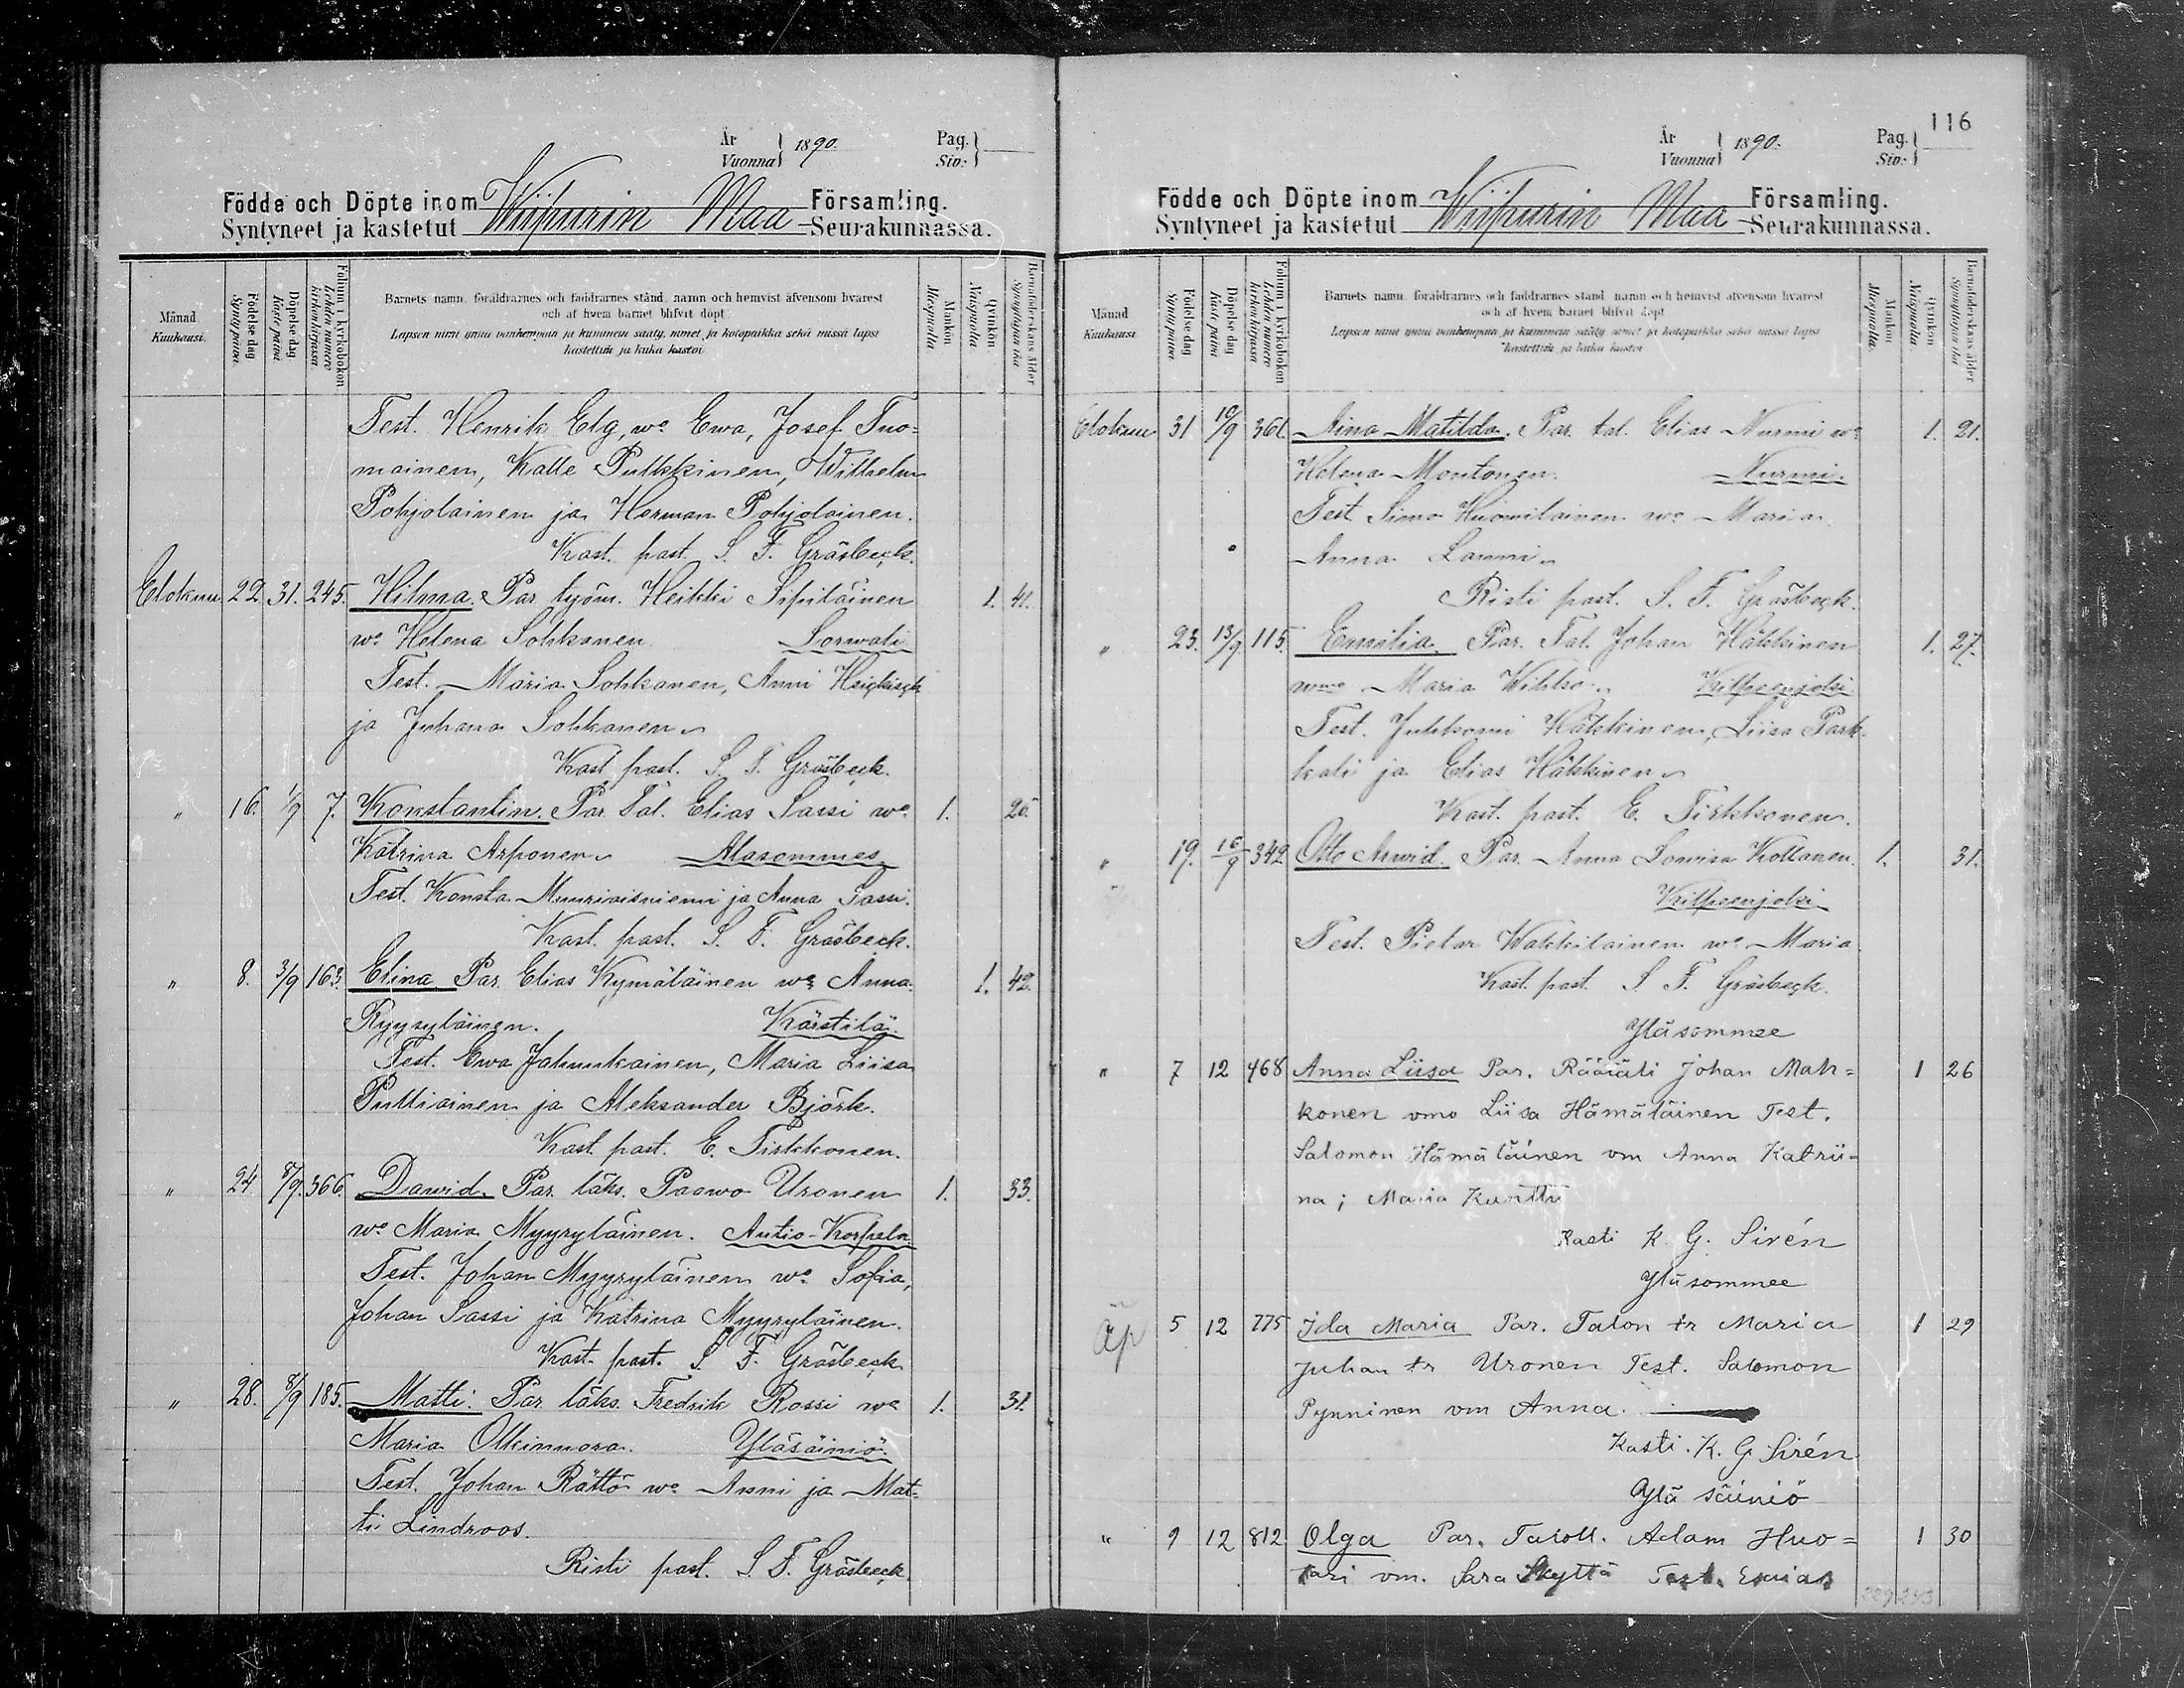 År
Vuonna } 1890. Pag.
Siv. }
Födde och Döpte inom Wiipurin Maa Församling.
Syntyneet ja kastetut Seurakunnassa.
Månad
Kuukausi.
Födelsedag
Syntypäivä.
Döpelsedag
Kastepäivä
Folium i kyrkoboken
Lehden numero
kirkonkirjassa
Barnets namn, föräldrarnes och faddrarnes stånd, namn och hemvist äfvensom hvarest
och af hvem barnet blifvit döpt
Lapsen nimi ynnä vanhempain ja kummein sääty, nimet ja kotopaikka sekä missä lapsi
kastettiin ja kuka kastoi
Mankön
Miespuolia.
Qvinkön
Naispuolia.
Barnaföderskans ålder
Synnyttäjän ikä
Test. Henrik Elg, wo Ewa, Josef Tuo=
mainen, Kalle Pulkkinen, Wilhelm
Pohjolainen ja Herman Pohjolainen.
Kast. past. S. F. Gräsbeck.
Elokuu 22 31. 245. Hilma. Par. työm. Heikki Sipiläinen 1. 41.
wo Helena Sohkanen. Sorwali
Test. Maria Sohkanen, Anni
ja Juhana Sohkanen.
Kast. past. S. F. Gräsbeck.
" 16. 1/9 7. Konstantin. Par. Tal. Elias Sassi wo 1. 26.
Katrina Arponen. Alasommee
Test. Konsta ja Anna Sassi.
Kast. past. S. F. Gräsbeck.
" 8. 3/9 163. Elina Par. Elias Kymäläinen wo Anna 1. 42.
Ryysyläinen. Kärstilä.
Test. Ewa Jahnukainen, Maria Liisa
Pulliainen ja Aleksander Björk.
Kast. past. E. Tirkkonen.
" 24 8/9. 366. Dawid. Par. läks. Paawo Uronen 1. 33.
wo Maria Myyryläinen. Autio-Korpela.
Test. Johan Myyryläinen wo Sofia,
Johan Sassi ja Katrina Myyryläinen.
Kast. past. S. F. Gräsbeck
" 28. 8/9 185. Matti. Par. läks. Fredrik Rossi wo 1. 31.
Maria Olkinuora. Yläsäiniö.
Test. Johan Rättö wo Anni ja Mat-
ti Lindroos.
Risti past. S. F. Gräsbeck.
116
År
Vuonna } 1890. Pag.
Siv. }
Födde och Döpte inom Wiipurin Maa Församling.
Syntyneet ja kastetut Seurakunnassa.
Månad
Kuukausi
Födelsedag
Syntypäivä
Döpelsedag
Kastepäivä
Folium i kyrkoboken
Lehden numero
kirkonkirjassa
Barnets namn, föräldrarnes och faddrarnes stånd, namn och hemvist äfvensom hvarest
och af hvem barnet blifvit döpt
Lapsen nimi ynnä vanhempain ja kummein sääty, nimet ja kotopaikka sekä missä lapsi
kastettiin ja kuka kastoi
Mankön
Miespuolia.
Qvinkön
Naispuolia.
Barnaföderskans ålder
Synnyttäjän ikä
Elokuu 31 10/9 361. Aina Matilda. Par. tal. Elias Nurmi wo 1. 21.
Helena Montonen. Nurmi.
Test. Simo Huomilainen wo Maria.
Anna Lammi.
Risti past. S. F. Gräsbeck.
" 23. 13/9. 115. Emilia. Par. Tal. Johan Häkkinen 1. 27.
Maria Wihko. Kilpeenjoki
Test. Juhkomi Häkkinen, Liisa Park-
kali ja Elias Häkkinen.
Kast. past. E. Tirkkonen.
" 19. 16/9 342 Otto Arwid. Par. Anna Lowisa Kottanen. 1. 31.
Kilpeenjoki
Test. Pietar Wakkilainen wo Maria
Kast. past. S. F. Gräsbeck.
Yläsommee
" 7 12 468 Anna Liisa Par. Räätäli Johan Mah= 1 26
konen vmo Liisa Hämäläinen Test.
Salomon Hämäläinen vm Anna Katrii-
na; Maria Kunttu
Kasti K. G. Sirén
Yläsommee
Äp 5 12 775 Ida Maria Par. Talon tr Maria 1 29
Juhan tr Uronen Test. Salomon
Pynninen vm Anna.
Kasti. K. G. Sirén
Ylä säiniö
" 9 12 812 Olga Par. Taloll. Adam Huo= 1 30
tari vm. Sara Skyttä Test.